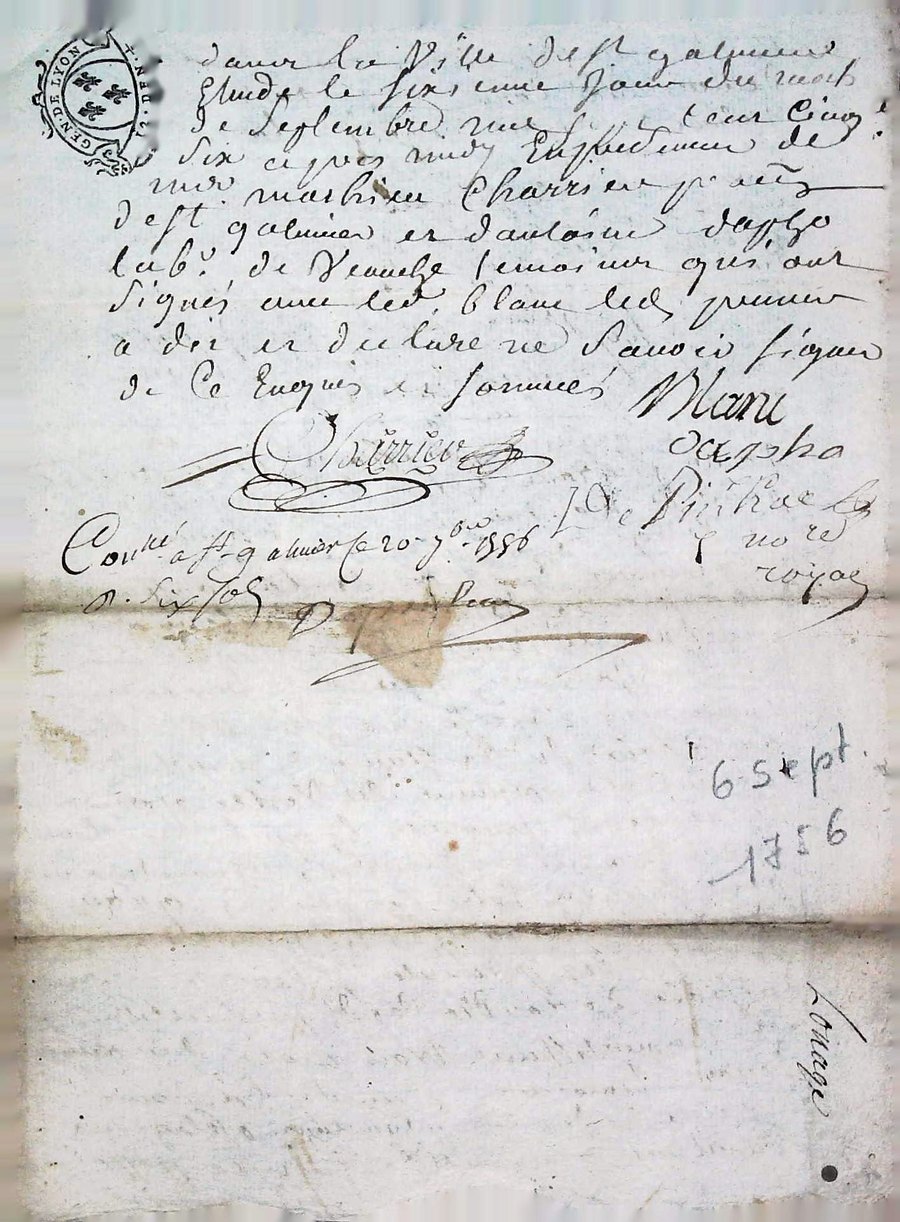 GEN. DE LYON
dans la Ville de st galmier
Etude le sixieme Jour du mois
de Septembre cinq.te
six apres midy En presence de
mathieu Charrier
de st. galmier et d'antoine dapzho
lab.r de Veauche temoins qui ont
signés avec led. blanc led. preneur
a dit et declaré ne savoir signer
de Ce Enquis et sommés
Blanc
Charrier
Dapzho
no.re
royal
Con.lé a st galmier le 20 7bre 1756
R. six sols
6 sept.
1756
Louage